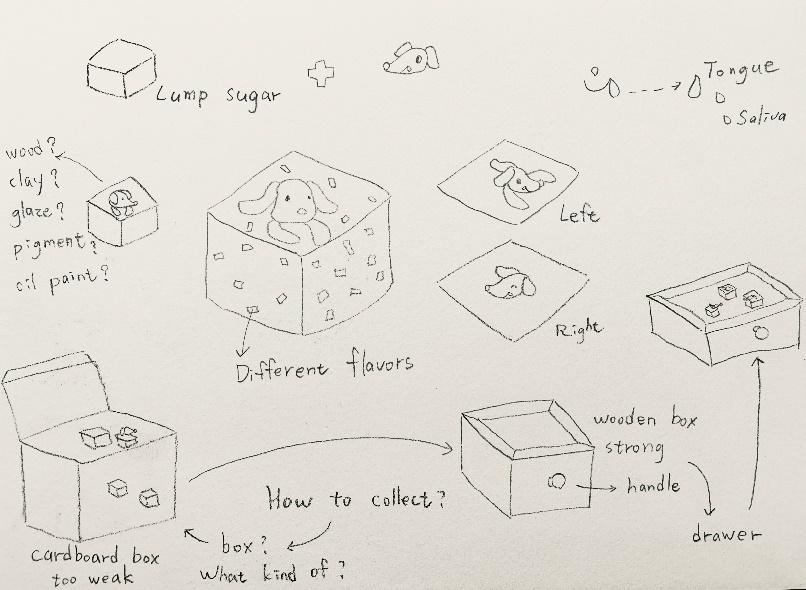 Lump sugar
Tongue
Saliva
wood?
clay?
glaze?
pigment?
oil paint?
Left
Right
Different flavors
wooden box
strong
handle
drawer
How to collect?
box?
What kind of?
cardboard box
too weak